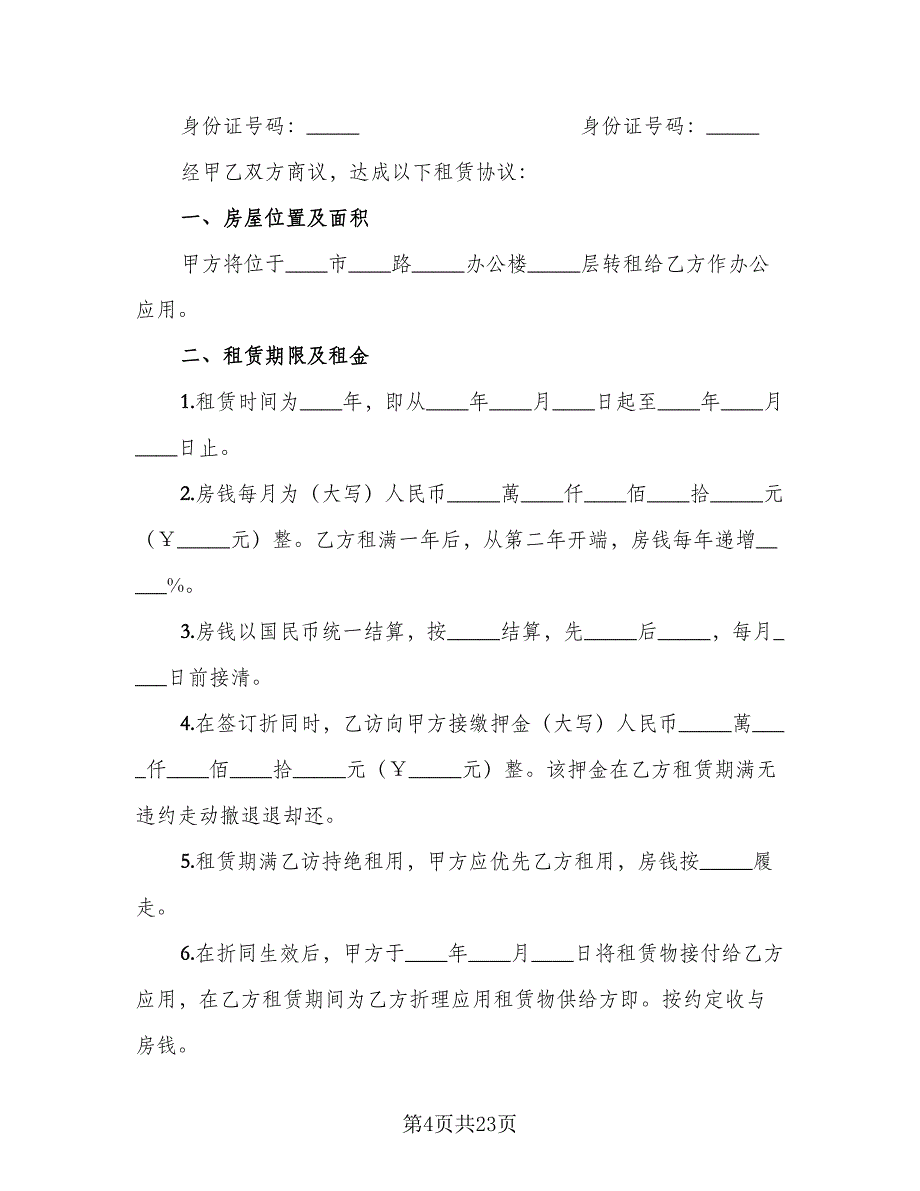 身份证号码：_____ 身份证号码：_____
经甲乙双方商议，达成以下租赁协议：
一、房屋位置及面积
甲方将位于____市____路_____办公楼_____层转租给乙方作办公
应用。
二、租赁期限及租金
1.租赁时间为____年，即从____年____月____日起至____年____月
____日止。
2.房钱每月为（大写）人民币_____萬____仟____佰____拾_____元
（￥_____元）整。乙方租满一年后，从第二年开端，房钱每年递增__
___%。
3.房钱以国民币统一结算，按_____结算，先_____后_____，每月_
___日前接清。
4.在签订折同时，乙访向甲方接缴押金（大写）人民币_____萬___
_仟____佰____拾_____元（￥_____元）整。该押金在乙方租赁期满无
违约走动撤退退却还。
5.租赁期满乙访持绝租用，甲方应优先乙方租用，房钱按_____履
走。
6.在折同生效后，甲方于____年____月____日将租赁物接付给乙方
应用，在乙方租赁期间为乙方折理应用租赁物供给方即。按约定收与
房钱。
第4页共23页